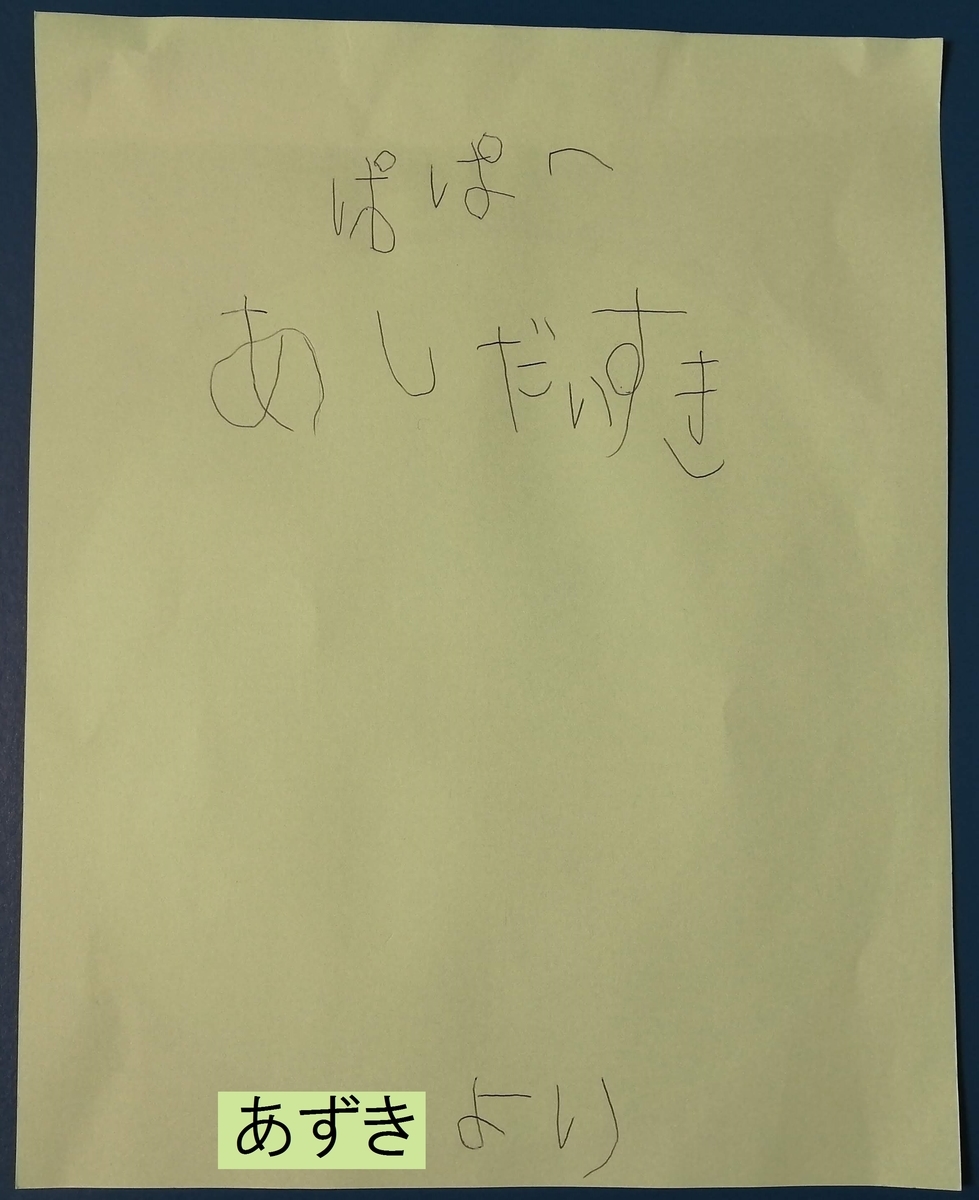 ぱぱへ
あしだいすき
あずきより